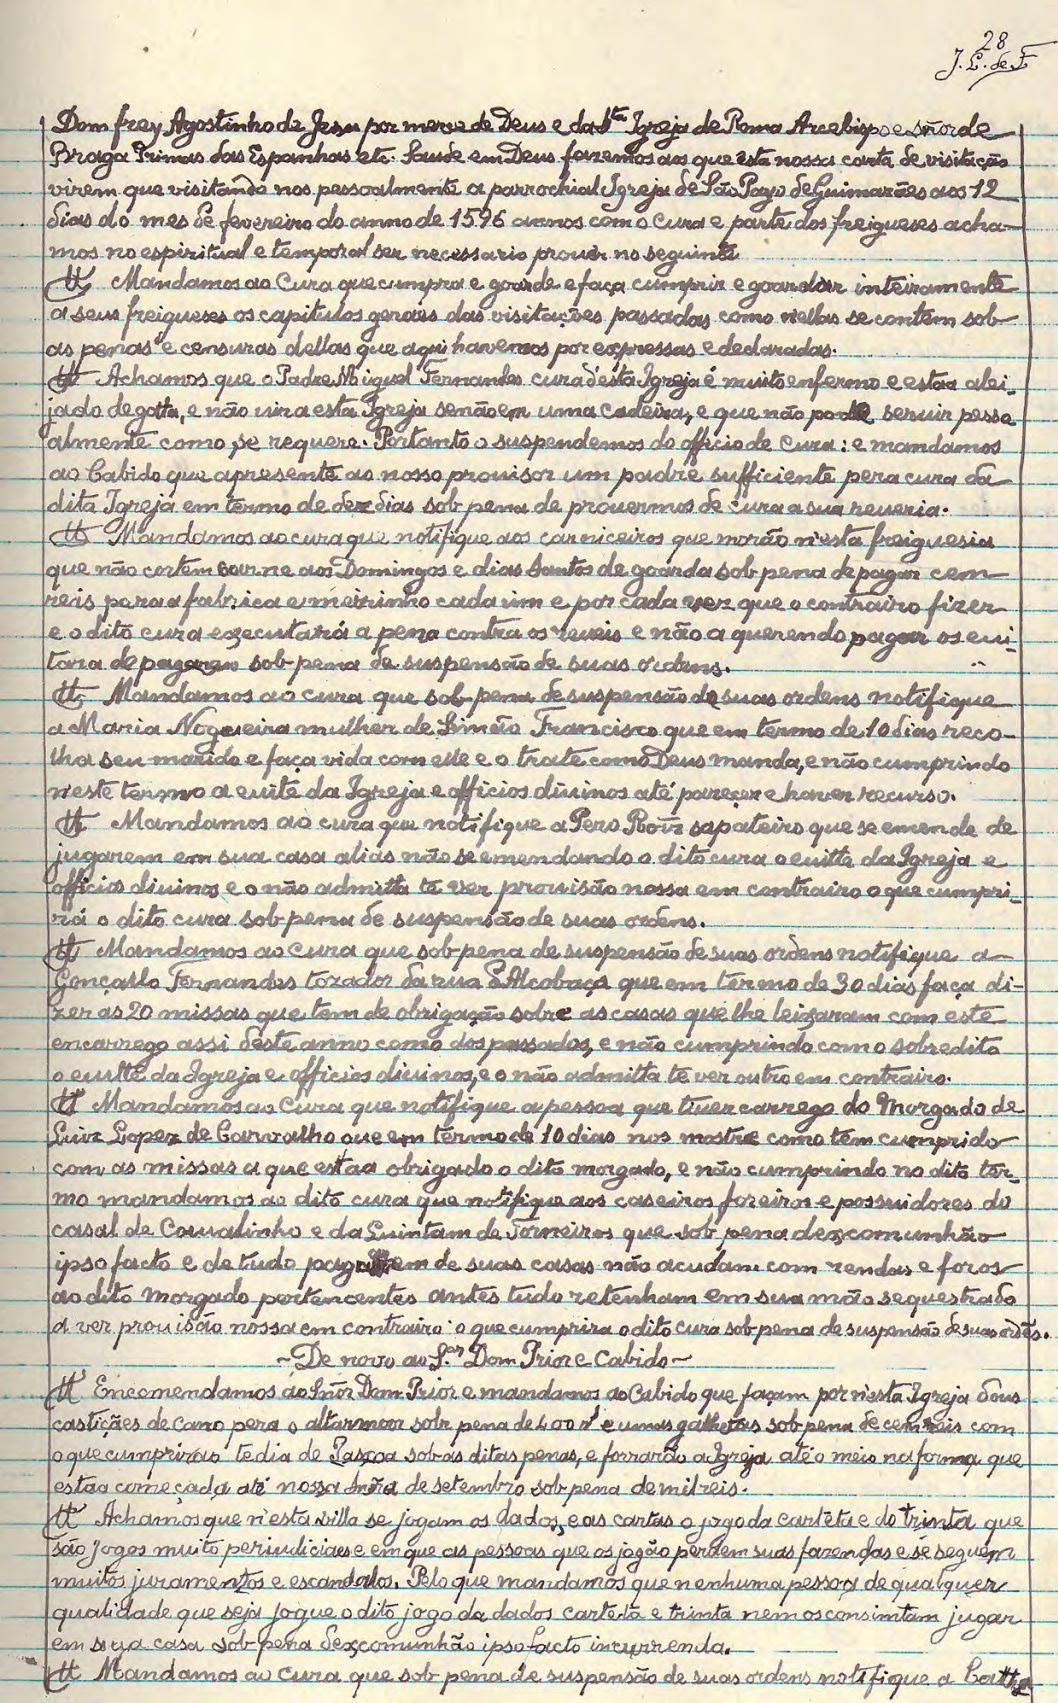 28
J. L. de F
Dom frey Agostinho de Jesu por merce de Deus e da Sta Igreja de Roma Arcebispo e sñor de
Braga Primas das Espanhas etc. Saude em Deus fazemos aos que esta nossa carta de visitação
virem que visitando nos pessoalmente a parrochial Igreja de São Payo de Guimarães aos 12
dias do mes de fevereiro do anno de 1596 annos com o Cura e parte dos freigueses acha-
mos no espiritual e temporal ser necessario prouer no seguinte
Mandamos ao Cura que cumpra e goarde e faça cumprir e goardar inteiramente
a seus freigueses os capitulos geraes das visitações passadas como nellas se contem sob
as penas e censuras dellas que aqui havemos por expressas e declaradas.
Achamos que o Padre Miguel Fernandes cura d'esta Igreja é muito enfermo e estaa alei-
jado de gotta, e não vir a esta Igreja senão em uma cadeira, e que não pode seruir pesso
almente como se requere. Portanto o suspendemos do officio de Cura: e mandamos
ao Cabido que apresente ao nosso prouisor um padre sufficiente pera cura da
dita Igreja em termo de dez dias sob pena de prouermos de cura a sua reueria.
Mandamos ao cura que notifique aos carniceiros que morão n'esta freiguesia
que não cortem carne aos Domingos e dias Santos de goarda sob pena de pagar cem
reis para a fabrica e meirinho cada um e por cada vez que o contrairo fizer
e o dito cura executará a pena contra os reueis e não a querendo pagar os eui-
tara de pagarem sob pena de suspensão de suas ordens.
Mandamos ao cura que sob pena de suspensão de suas ordens notifique
a Maria Nogueira mulher de Simão Francisco que em termo de 10 dias reco-
lha seu marido e faça vida com elle e o trate como Deus manda, e não cumprindo
n'este termo a euite da Igreja e officios diuinos até parecer e haver recurso.
Mandamos ao cura que notifique a Pero Roiz sapateiro que se emende de
jugarem em sua casa alias não se emendando o dito cura o euitte da Igreja e
officios diuinos, e o não admitta te ver prouisão nossa em contrairo o que cumpri-
rá o dito cura sob pena de suspensão de suas ordens.
Mandamos ao Cura que sob pena de suspensão de suas ordens notifique a
Gonçallo Fernandes tozador da rua d'Alcobaça que em termo de 30 dias faça di-
zer as 20 missas que tem de obrigação sobre as casas que lhe leixaram com este
encarrego assi d'este anno como dos passados, e não cumprindo com o sobredito
o euitte da Igreja e officios diuinos, e o não admitta te ver outro em contrairo.
Mandamos ao Cura que notifique a pessoa que tiuer carrego do Morgado de
Luiz Lopez de Carvalho que em termo de 10 dias nos mostre como tem cumprido
com as missas a que estaa obrigado o dito morgado, e não cumprindo no dito ter-
mo mandamos ao dito cura que notifique aos caseiros foreiros e possuidores do
casal de Coualinho e da Quintam de Torneiros que sob pena de excomunhão
ipso facto e de tudo pagarem de suas casas não acudam com rendas e foros
ao dito morgado pertencentes antes tudo retenham em sua mão sequestrado
a ver prouisão nossa em contrairo: o que cumprira o dito cura sob pena de suspensão de suas ordẽs.
~ De novo ao S.or Dom Prior e Cabido ~
Encomendamos ao Sñor Dom Prior e mandamos ao Cabido que façam por n'esta Igreja dous
castições de cano pera o altar moor sob pena de 400 rs e umas galhetas sob pena de cem reis com
o que cumprirão te dia de Pascoa sob as ditas penas, e forrarão a Igreja até o meio na forma que
estaa começada até nossa Sñra de setembro sob pena de mil reis.
Achamos que n'esta villa se jogam os dados, e as cartas o jogo da carteta e do trinta que
são jogos muito periudiciaes e em que as pessoas que os jogão perdem suas fazendas e se seguem
muitos juramentos e escandalos. Pelo que mandamos que nenhuma pessoa de qualquer
qualidade que seja jogue o dito jogo da dados carteta e trinta nem os consintam jugar
em sua casa sob pena d'excomunhão ipso facto incurrenda.
Mandamos ao Cura que sob pena de suspensão de suas ordens notifique a